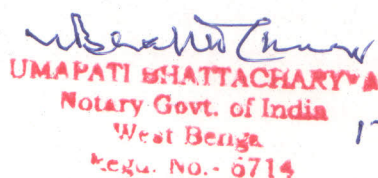 UMAPATI BHATTACHARYYA
Notary Govt. of India
West Benga
Regd. No.- 6714